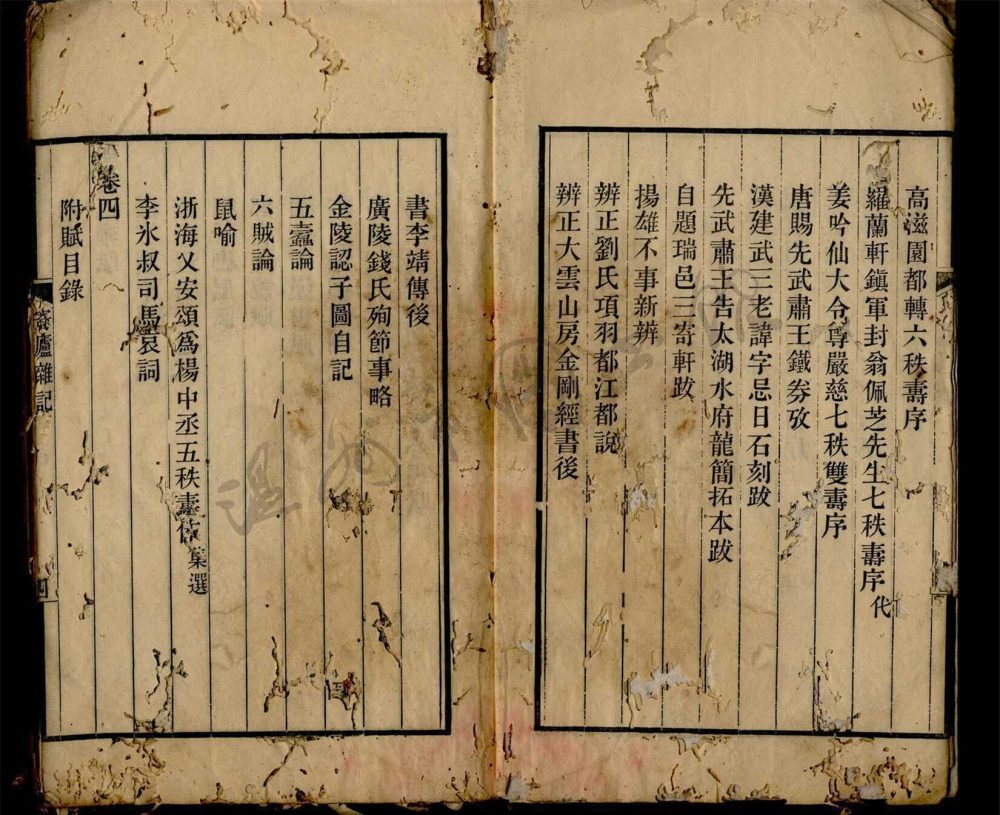 高滋園都轉六秩壽序
羅蘭軒鎭軍封翁佩芝先生七秩壽序代
姜吟仙大令尊嚴慈七秩雙壽序
唐賜先武肅王鐵券攷
漢建武三老諱字忌日石刻跋
先武肅王告太湖水府龍簡拓本跋
自題瑞邑三寄軒跋
揚雄不事新辨
辨正劉氏項羽都江都說
辨正大雲山房金剛經書後
書李靖傳後
廣陵錢氏殉節事略
金陵認子圖自記
五蠧論
六賊論
鼠喻
浙海乂安頌爲楊中丞五秩壽 集選
李氷叔司馬哀詞
卷四
附賦目錄
廬雜記
四
溫州市圖